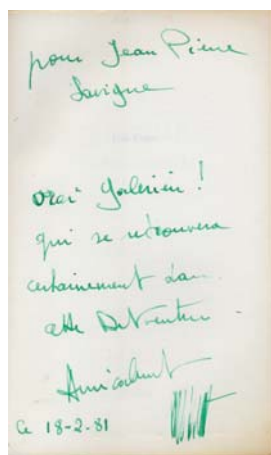 pour Jean Pierre
Lavigne
vrai galérien !
qui se retrouvera
certainement dans
cette
Amicalement
Ce 18-2-81